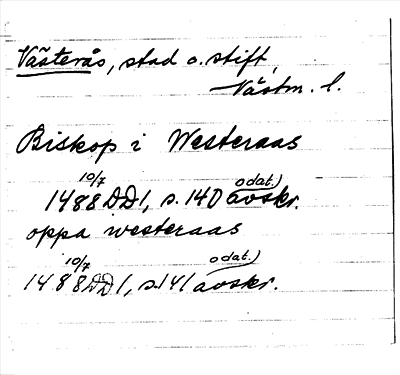 Västerås, stad o. stift,
Västm. l.
Biskop i Westeraas
10/7 odat.)
1488 DD1, s. 140 avskr.
oppa westeraas
10/7 odat.)
1488 DD1, s. 141 avskr.